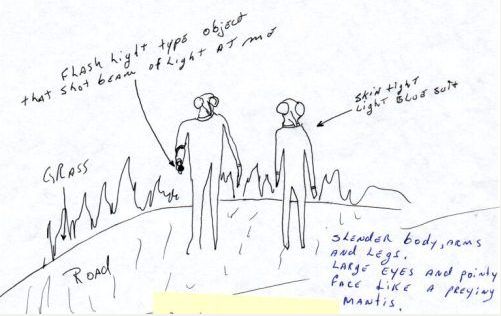 FLASH LIGHT TYPE OBJECT
THAT SHOT BEAM OF LIGHT AT ME
SKIN TIGHT
LIGHT BLUE SUIT
GRASS
ROAD
SLENDER BODY, ARMS
AND LEGS.
LARGE EYES AND POINTY
FACE LIKE A PREYING
MANTIS.